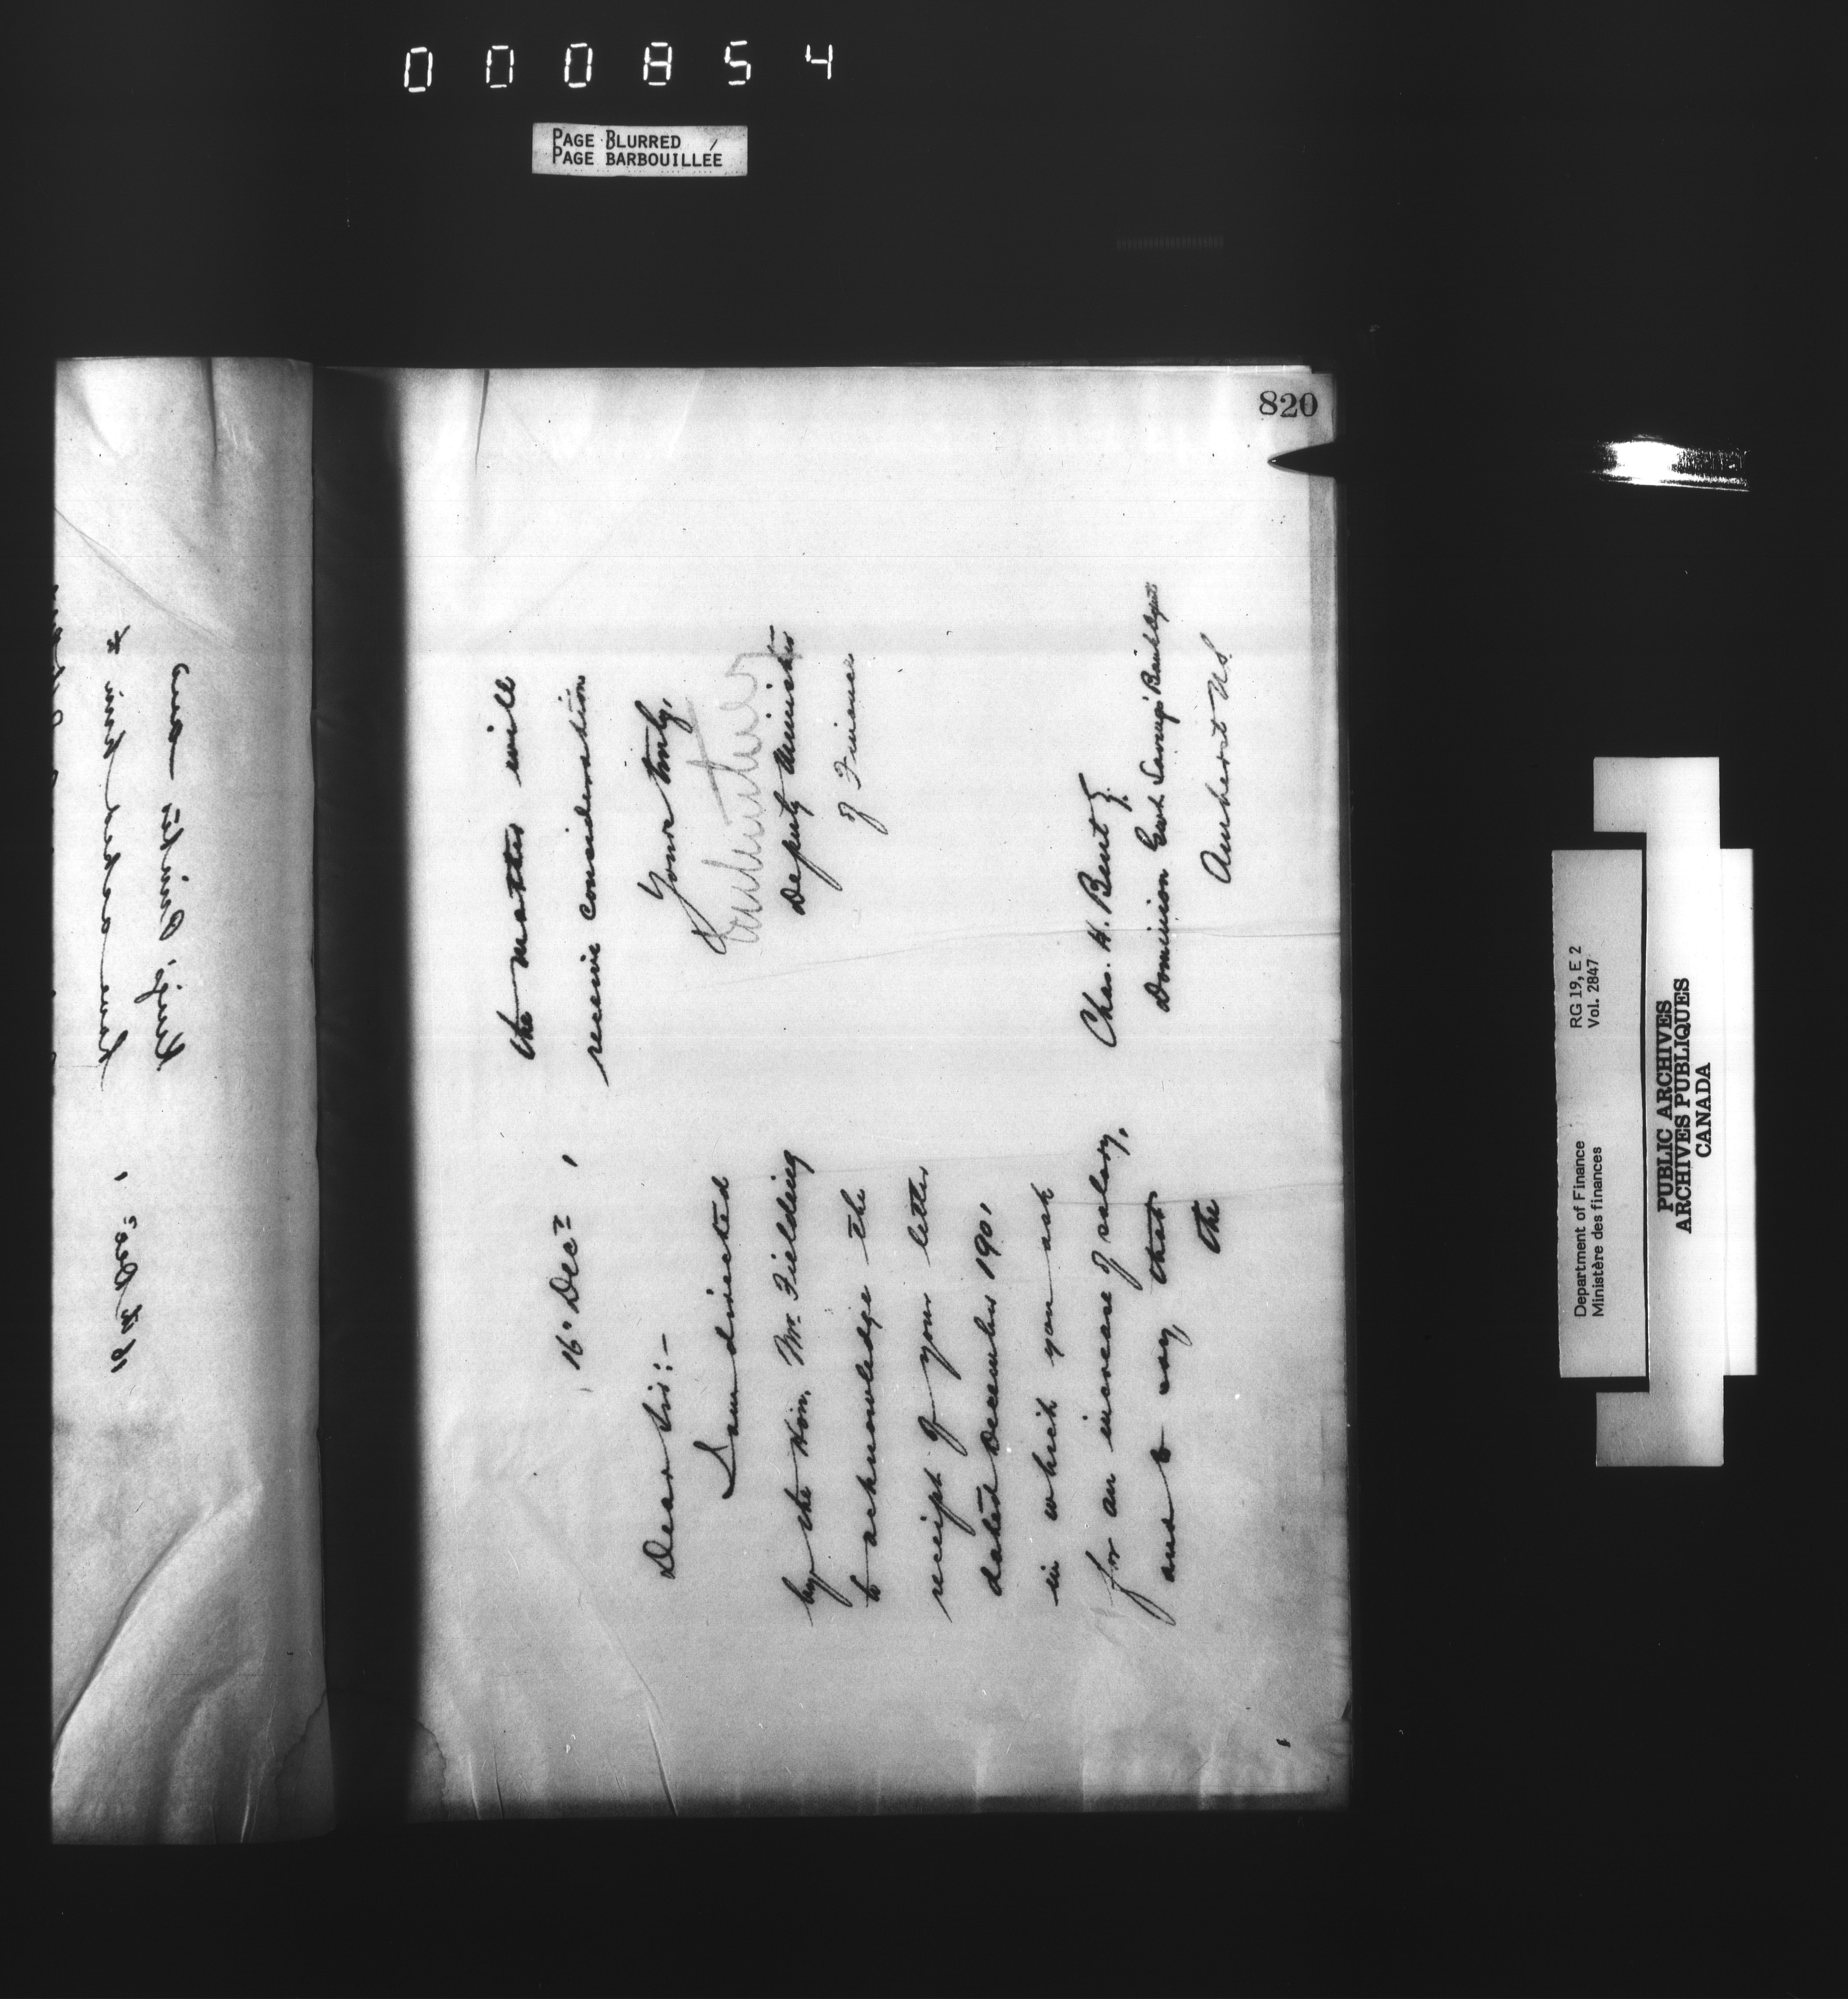 000854
PAGE BLURRED
PAGE BARBOUILLÉE
820
16. Dec: 1
Dear Sir:—
I am directed
by the Hon. Mr. Fielding
to acknowledge the
receipt of your letter
dated December 1901
in which you ask
for an increase of salary,
and to say that
the
the matter will
receive consideration
Yours truly,
Deputy Minister
of Finance
Chas. H. Bent
Dominion Govt. Savings Bank Agent
Amherst N.S.
Department of Finance
Ministère des finances
RG 19, E 2
Vol. 2847
PUBLIC ARCHIVES
ARCHIVES PUBLIQUES
CANADA